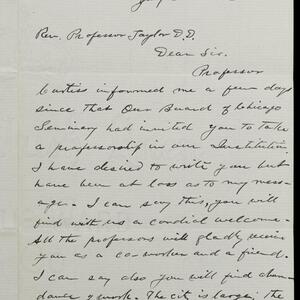 Rev. Professor Taylor D.D.
Dear Sir.
Professor
Curtiss informed me a few days
since that Our Board of Chicago
Seminary had invited you to take
a professorship in our Institution.
I have desired to write you but
have been at loss as to my mess-
age. I can say this, you will
find with us a cordial welcome.
All the professors will gladly receive
you as a co-worker and a friend.
I can say also you will find abun-
dance of work. The city is large; the